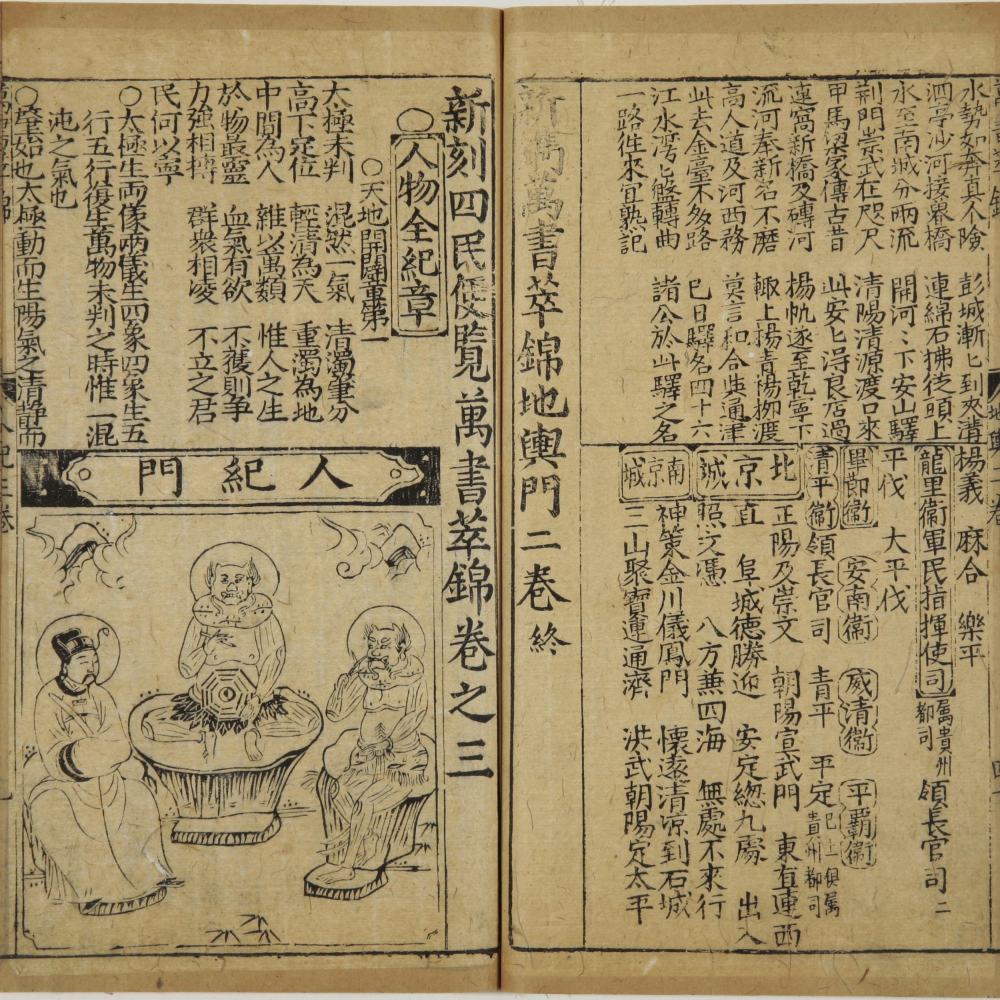 水勢如奔真不險 彭城漸匕到夾溝
泗亭沙河接畧橋 連綿石拂徃頭上
永至南城分兩流 開河〻下安山驛
荊門崇武在咫尺 清陽清源渡口來
甲馬梁家傳古昔 此安匕淂良店過
連窩新橋及磚河 楊帆逐至乾寧下
流河奉新名不磨 輙上楊青楊柳渡
高人道及河西務 莫言和合與通津
此去金臺不多路 巳日驛名四十六
江水灣匕盤轉曲 諸公於此驛之名
一路徃來宜熟記
楊義 麻合 樂平
龍里衞軍民指揮使司 属貴州都司 領長官司二
平伐 大平伐
畢節衞 安南衞 威清衞 平覇衞
清平衞 領長官司 青平 平定 巳上俱属貴州都司
北京城
正陽及崇文 朝陽宣武門 東直連西
直 阜城德勝迎 安定緫九處 出入
照文憑 八方無四海 無處不來行
南京城
神策金川儀鳳門 懷遠清凉到石城
三山聚寶連通濟 洪武朝陽定太平
新 萬書萃錦地輿門二卷終
新刻四民便覧萬書萃錦卷之三
○人物全紀章
○天地開闢章第一
太極未判 混然一氣 清濁肇分
高下定位 輕清為天 重濁為地
中間為人 雜以萬類 惟人之生
於物最靈 血氣有欲 不獲則争
力強相摶 群衆相凌 不立之君
民何以寧
○太極生兩像兩儀生四象四象生五
行五行復生萬物未判之時惟一混
沌之氣也
○肇先如也太極動而生陽氣之清静而
人紀門